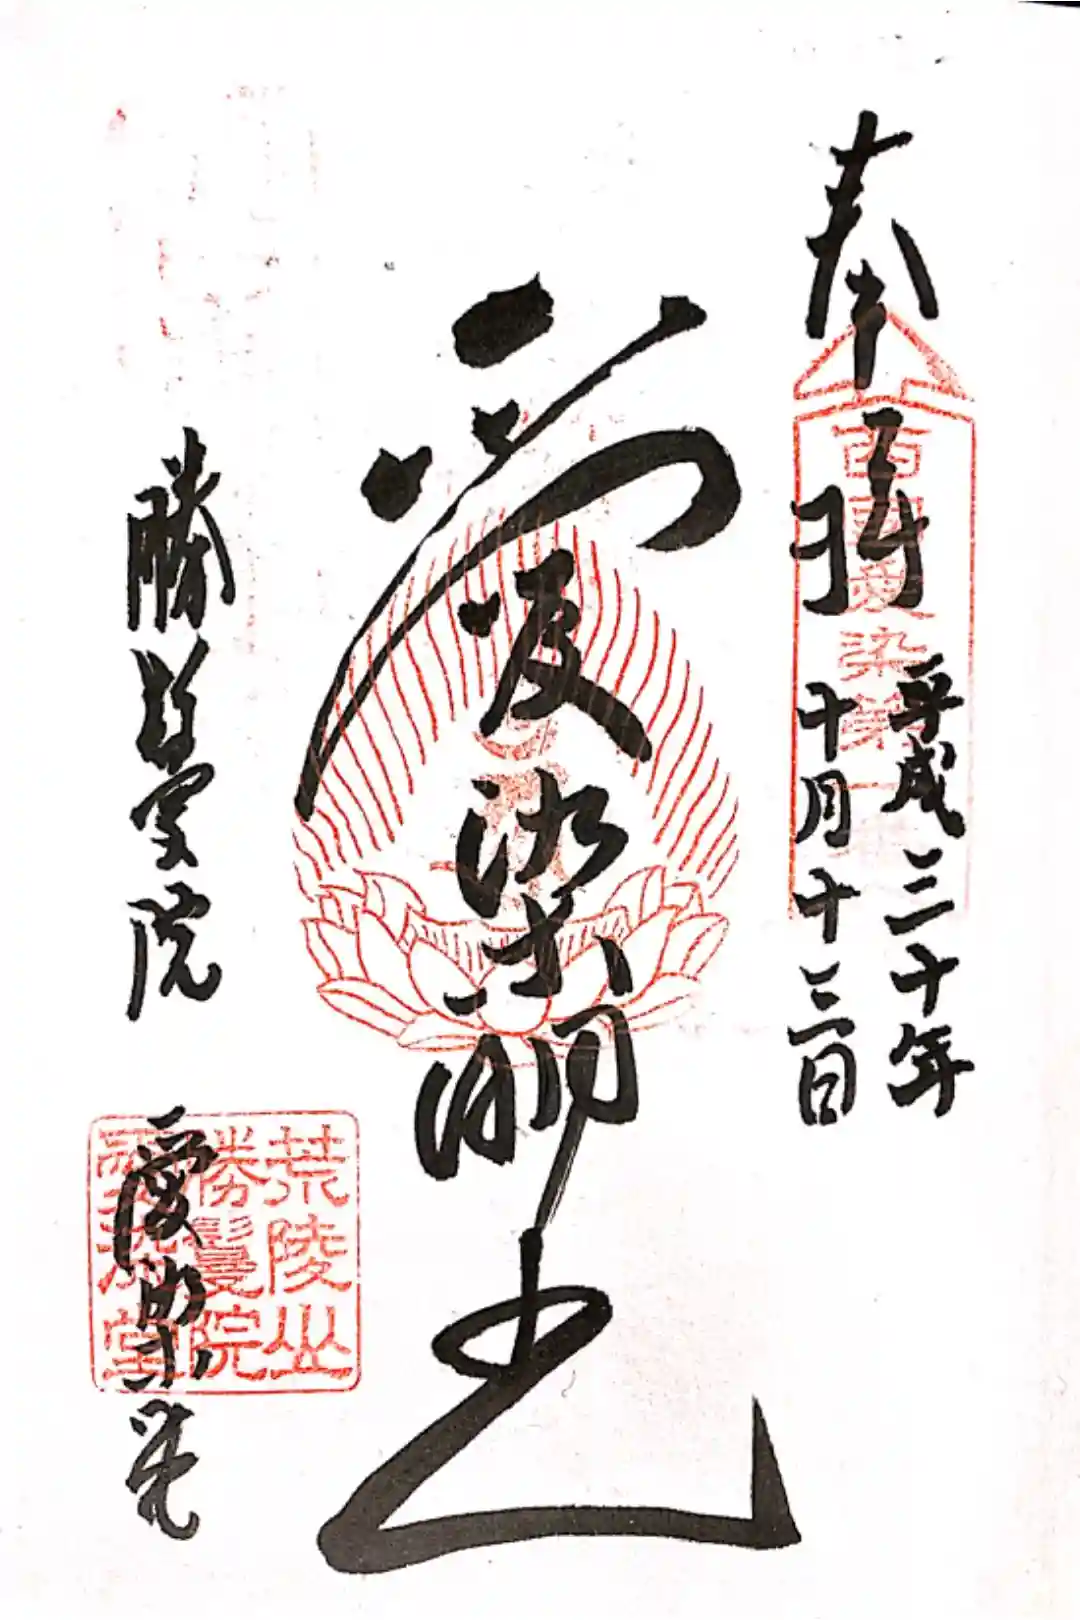 奉拝
西国愛染第一番
平成三十年
十月十三日
愛染明王
勝鬘院
愛染堂
荒陵山
勝鬘院
愛染堂